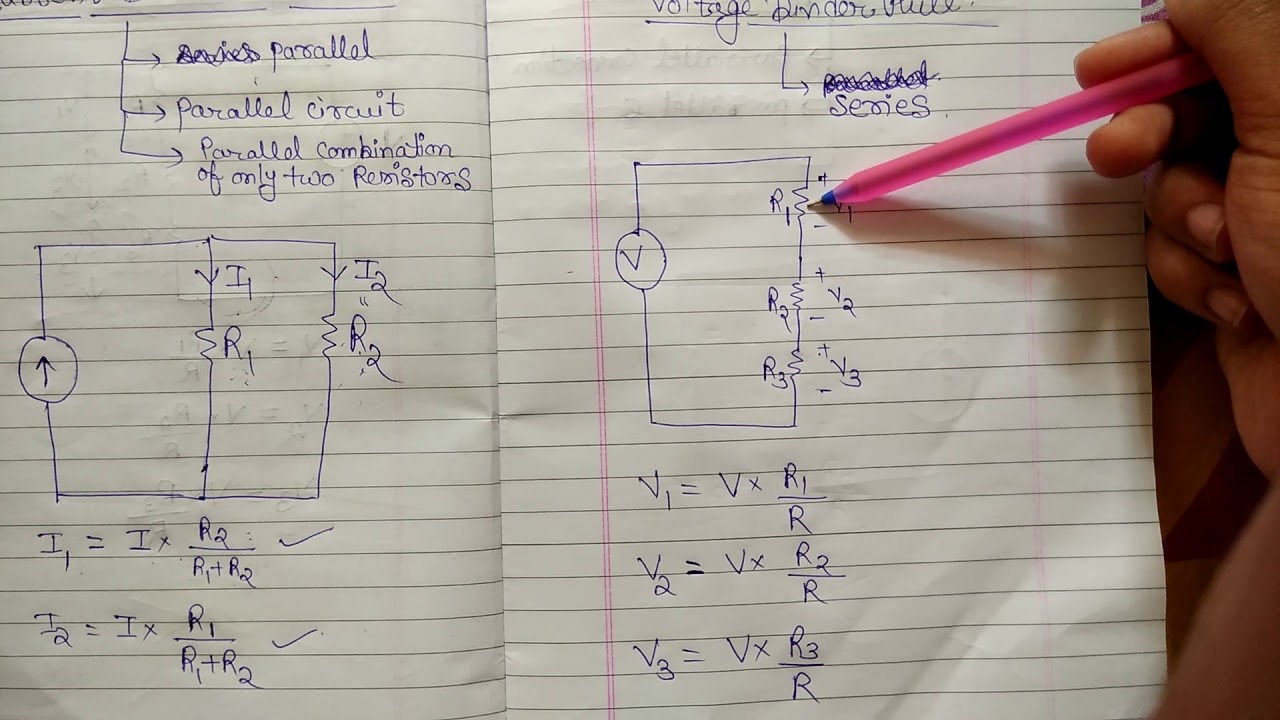 parallel
Parallel circuit
Parallel combination
of only two Resistors
I1 I2
R1 R2
I1 = I × R2 / R1+R2
I2 = I × R1 / R1+R2
Voltage
Series
V
R1 + V1 -
R2 + V2 -
R3 + V3 -
V1 = V × R1 / R
V2 = V × R2 / R
V3 = V × R3 / R